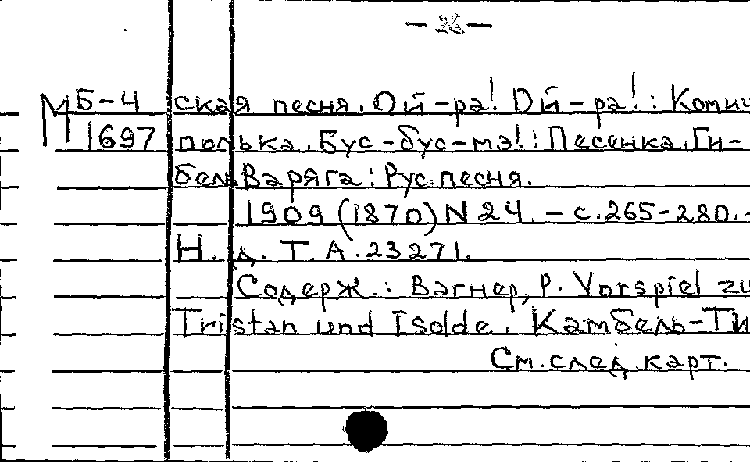 — 26 —
М Б-4 ская песня. Ой-ра! Ой-ра!: Комич
1697 полька. Бус-бус-мэ!: Песенка. Ги-
бель Варяга: Рус. песня.
1909 (1870) N 24. - с. 265-280. -
Н. д. Т. А. 23271.
Содерж.: Вагнер, Р. Vorspiel zu
Tristan und Isolde. Камбель-Ти
См. след. карт.